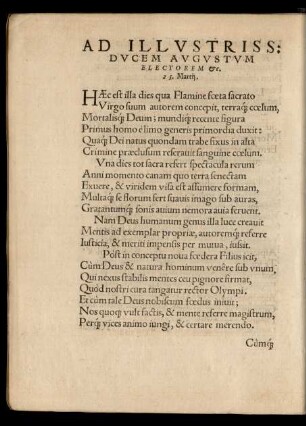 AD ILLVSTRISS:
DVCEM AVGVSTVM
ELECTOREM &c.
25. Martij.
HÆc est illa dies qua Flamine fœta sacrato
Virgo suum autorem concepit, terraq́; cœlum,
Mortalisq́; Deum: mundiq́; recente figura
Primus homo è limo generis primordia duxit:
Quaq́; Dei natus quondam trabe fixus in alta
Crimine præclusum reserauit sanguine cœlum.
Vna dies tot sacra refert spectacula rerum
Anni momento canam quo terra senectam
Exuere, & viridem visa est assumere formam,
Multaq́; se florum fert suauis imago sub auras,
Gratantumq́; sonis auium nemora auia feruent.
Nam Deus humanum genus illa luce creauit
Mentis ad exemplar propriæ, autoremq́; referre
Iusticia, & meriti impensis per mutua, iussit.
Pòst in conceptu noua fœdera Filius icit,
Cùm Deus & natura hominum venêre sub vnum,
Qui nexus stabilis mentes ceu pignore firmat,
Quòd nostri cura tangatur rector Olympi.
Et cùm tale Deus nobiscum fœdus iniuit;
Nos quoq́; vult factis, & mente referre magistrum,
Perq́; vices animo iungi, & certare merendo.
Cùmq́;